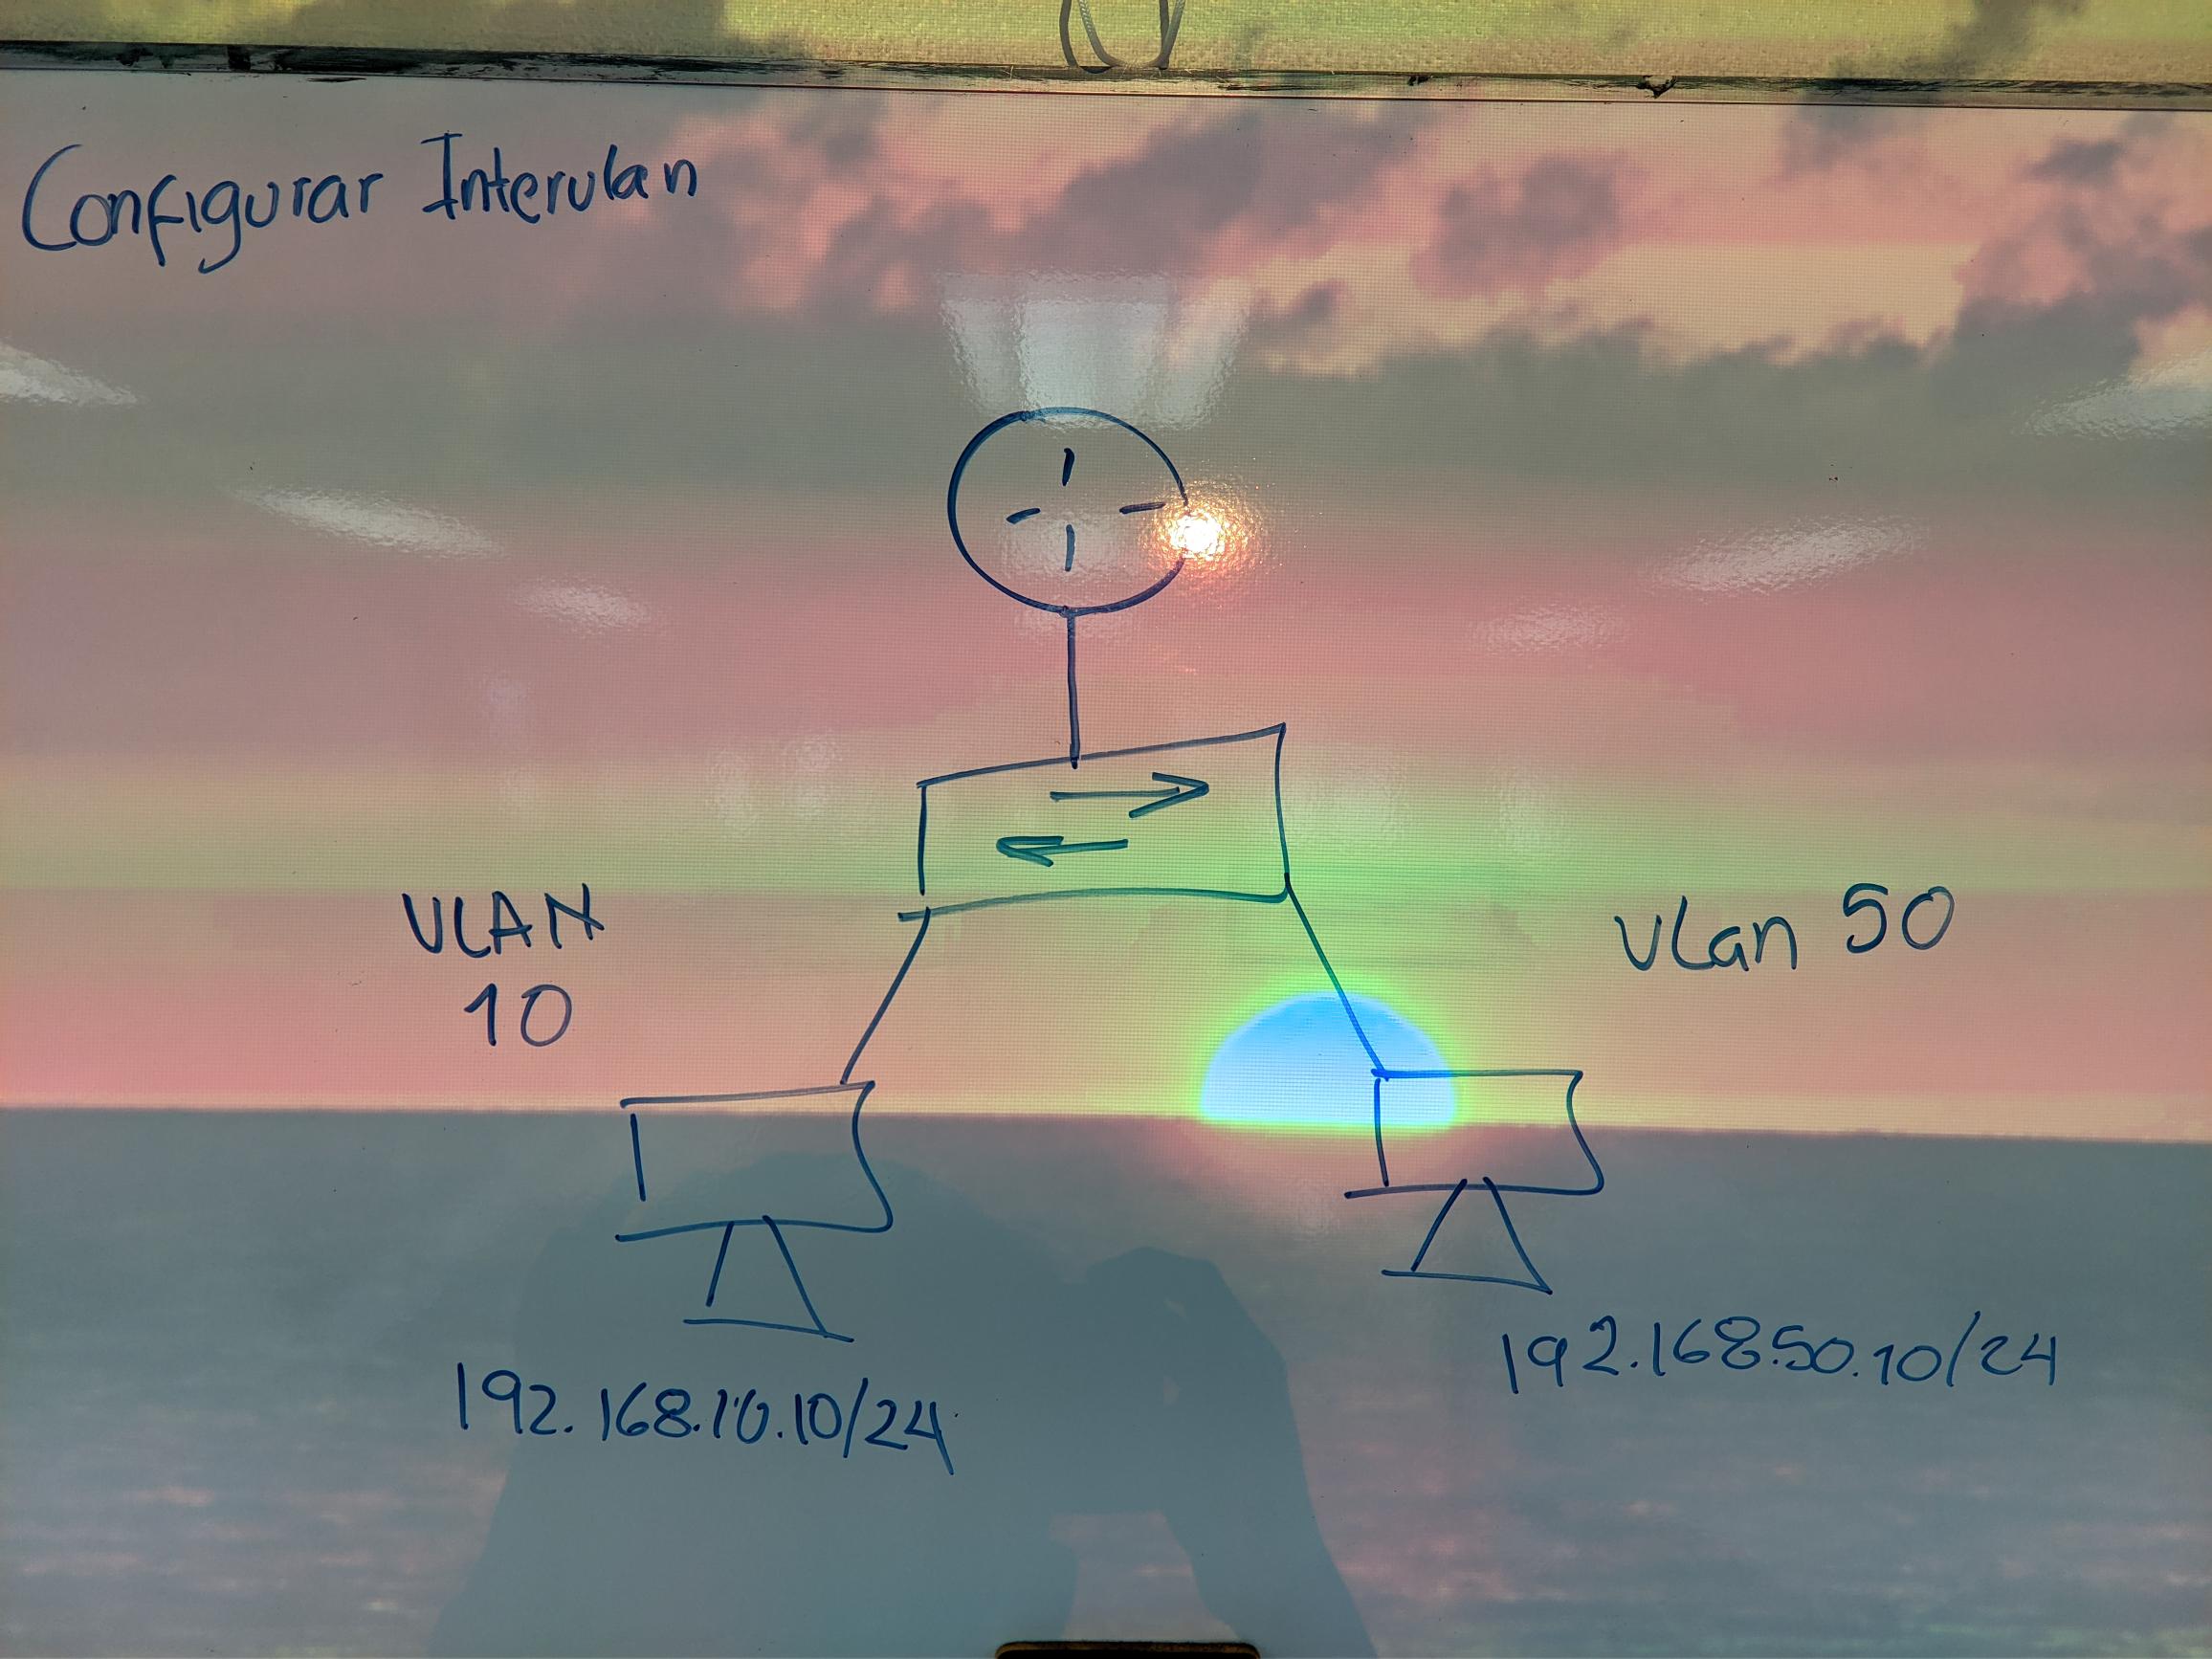 Configurar Intervlan
VLAN
10
Vlan 50
192.168.50.10/24
192.168.10.10/24